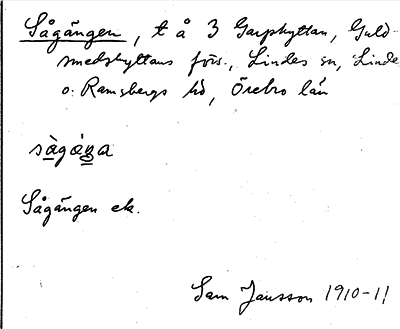 Sågången, t å 3 Garphyttan, Guld-
smedshyttans förs., Lindes sn, Linde
o. Ramsbergs hd, Örebro län
sàgáŋa
Sågången ek.
Sam Jansson 1910-11